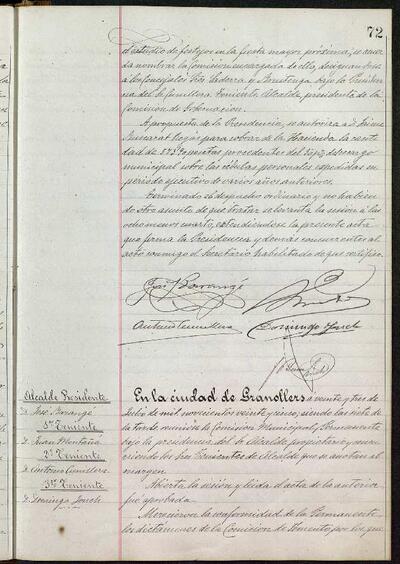 72
el estudio de festejos en la fiesta mayor próxima, se acuer
da nombrar la Comisión encargada de ello, designándose
a los Concejales Sres. y bajo la Presiden
cia del Sr. Cumellera, Teniente Alcalde, presidente de la
Comisión de Gobernación.
A propuesta de la Presidencia, se autoriza a D. Jaime
para cobrar de la Hacienda la canti
dad de pesetas procedentes del recargo
municipal sobre las cédulas personales expedidas en
periodo ejecutivo de varios años anteriores.
Terminado el despacho ordinario y no habien
do otro asunto de que tratar se levanta la sesión a las
ocho menos cuarto, extendiéndose la presente acta
que firma la Presidencia y demás concurrentes al
acto conmigo el Secretario habilitado de que certifico.
José Barangé
Antonio Cumellera
Domingo Jonch
Alcalde Presidente
D. José Barangé
1er Teniente
D. Juan Montañá
2º Teniente
D. Antonio Cumellera
3er Teniente
D. Domingo Jonch
En la ciudad de Granollers a veinte y tres de
Julio de mil novecientos veinte y cinco, siendo las siete de
la tarde reunióse la Comisión Municipal Permanente
bajo la presidencia del Sr. Alcalde propietario y concu
rriendo los tres Tenientes de Alcalde que se anotan al
margen.
Abierta la sesión y leída el acta de la anterior
fué aprobada.
Merecieron la conformidad de la Permanente
los dictámenes de la Comisión de Fomento, por los que